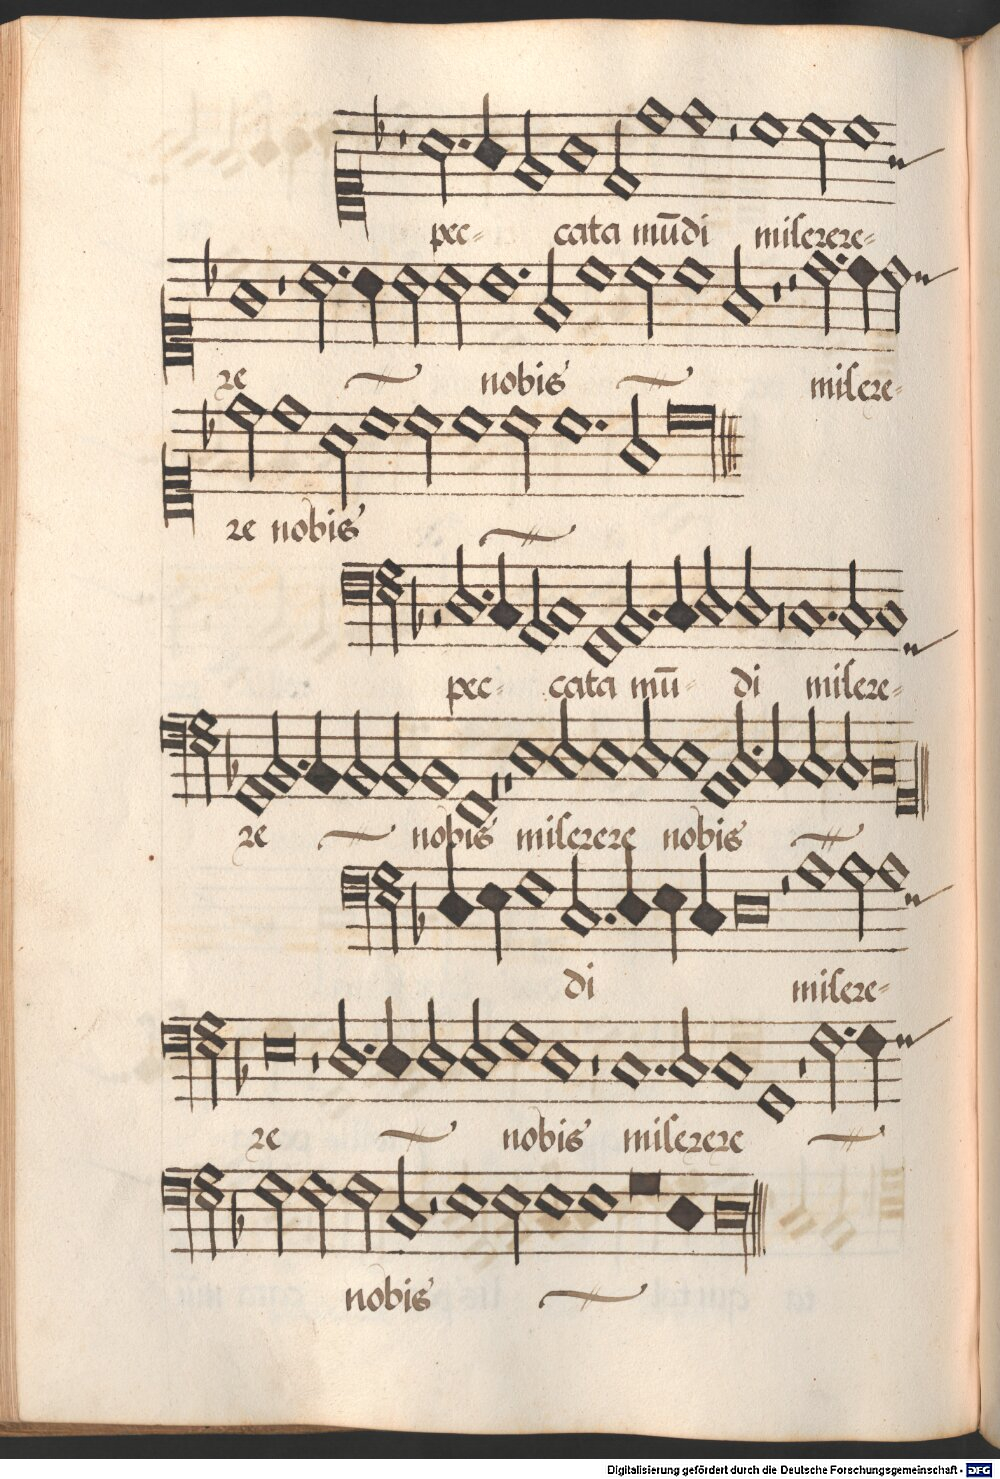 pec- cata mūdi miserere-
re nobis misere-
re nobis
pec- cata mū- di misere-
re nobis miserere nobis
di misere-
re nobis miserere
nobis
Digitalisierung gefördert durch die Deutsche Forschungsgemeinschaft - DFG